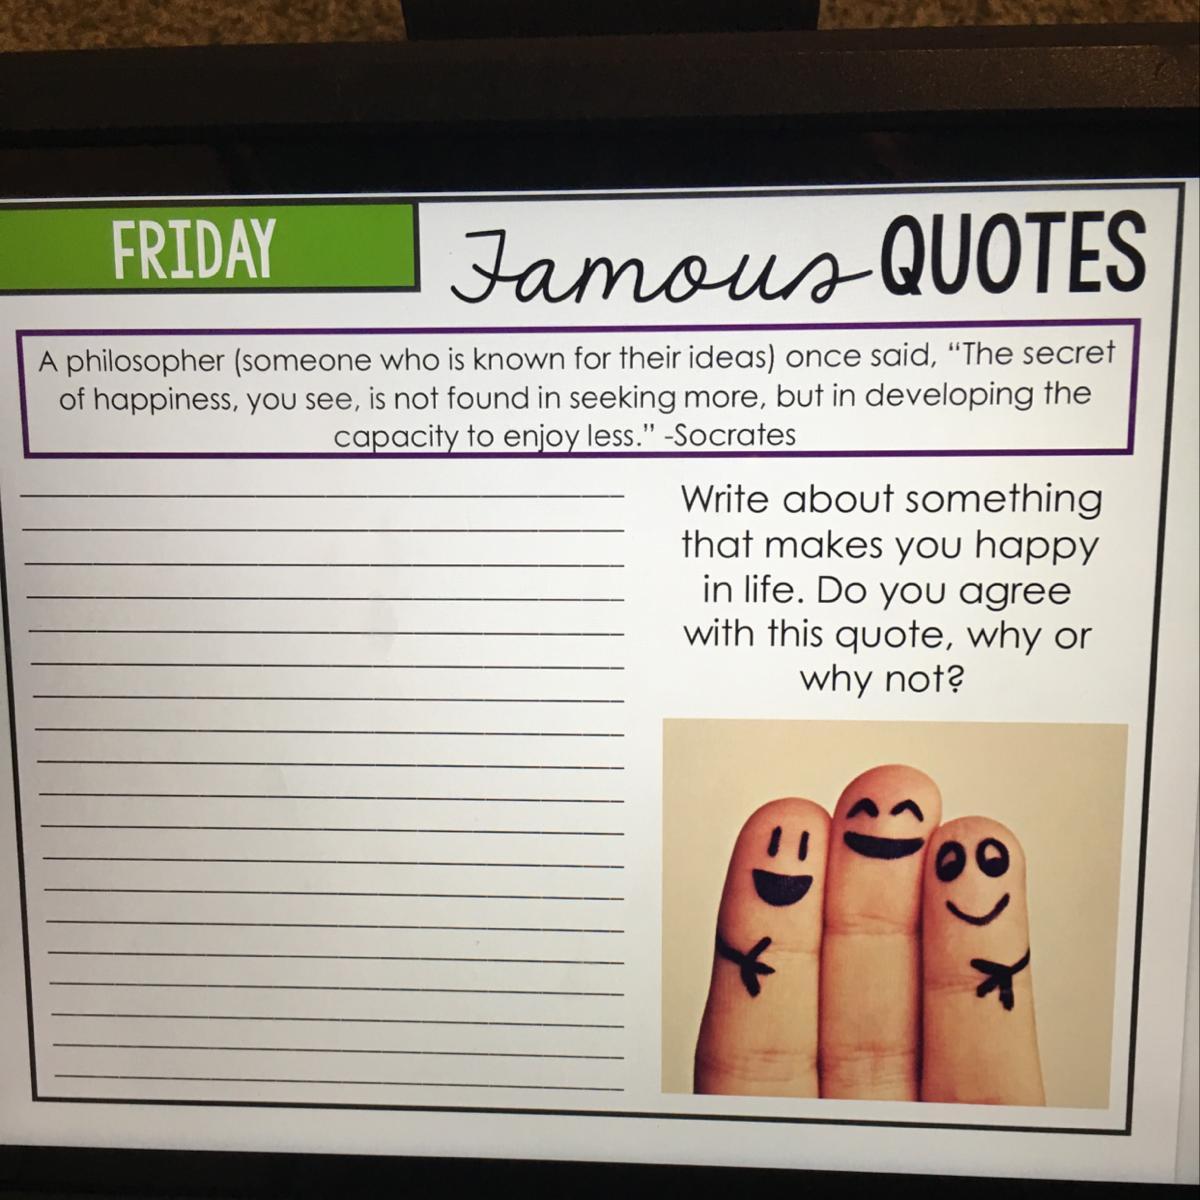 FRIDAY
Famous QUOTES
A philosopher (someone who is known for their ideas) once said, “The secret
of happiness, you see, is not found in seeking more, but in developing the
capacity to enjoy less.” -Socrates
Write about something
that makes you happy
in life. Do you agree
with this quote, why or
why not?